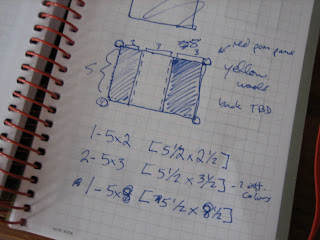 2 3 3
red pom poms
5
yellow
wool
back TBD
1-5x2 [5 1/2 x 2 1/2]
2-5x3 [5 1/2 x 3 1/2] - 2 diff. colors
1-5x8 [5 1/2 x 8 1/2]